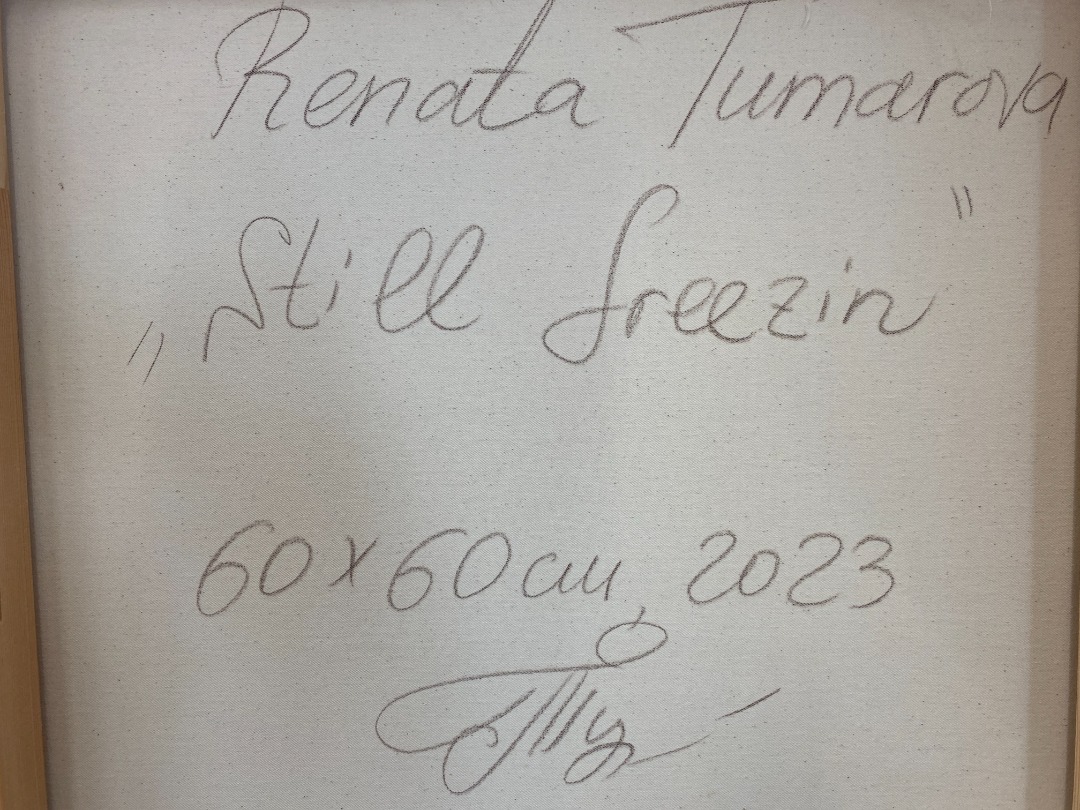 Renata Tumarova
„Still freezin"
60x60см, 2023